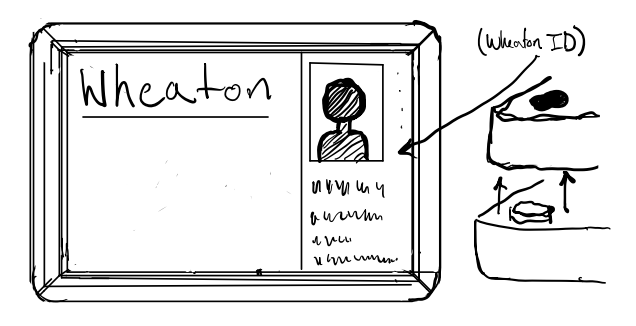 Wheaton
(Wheaton ID)